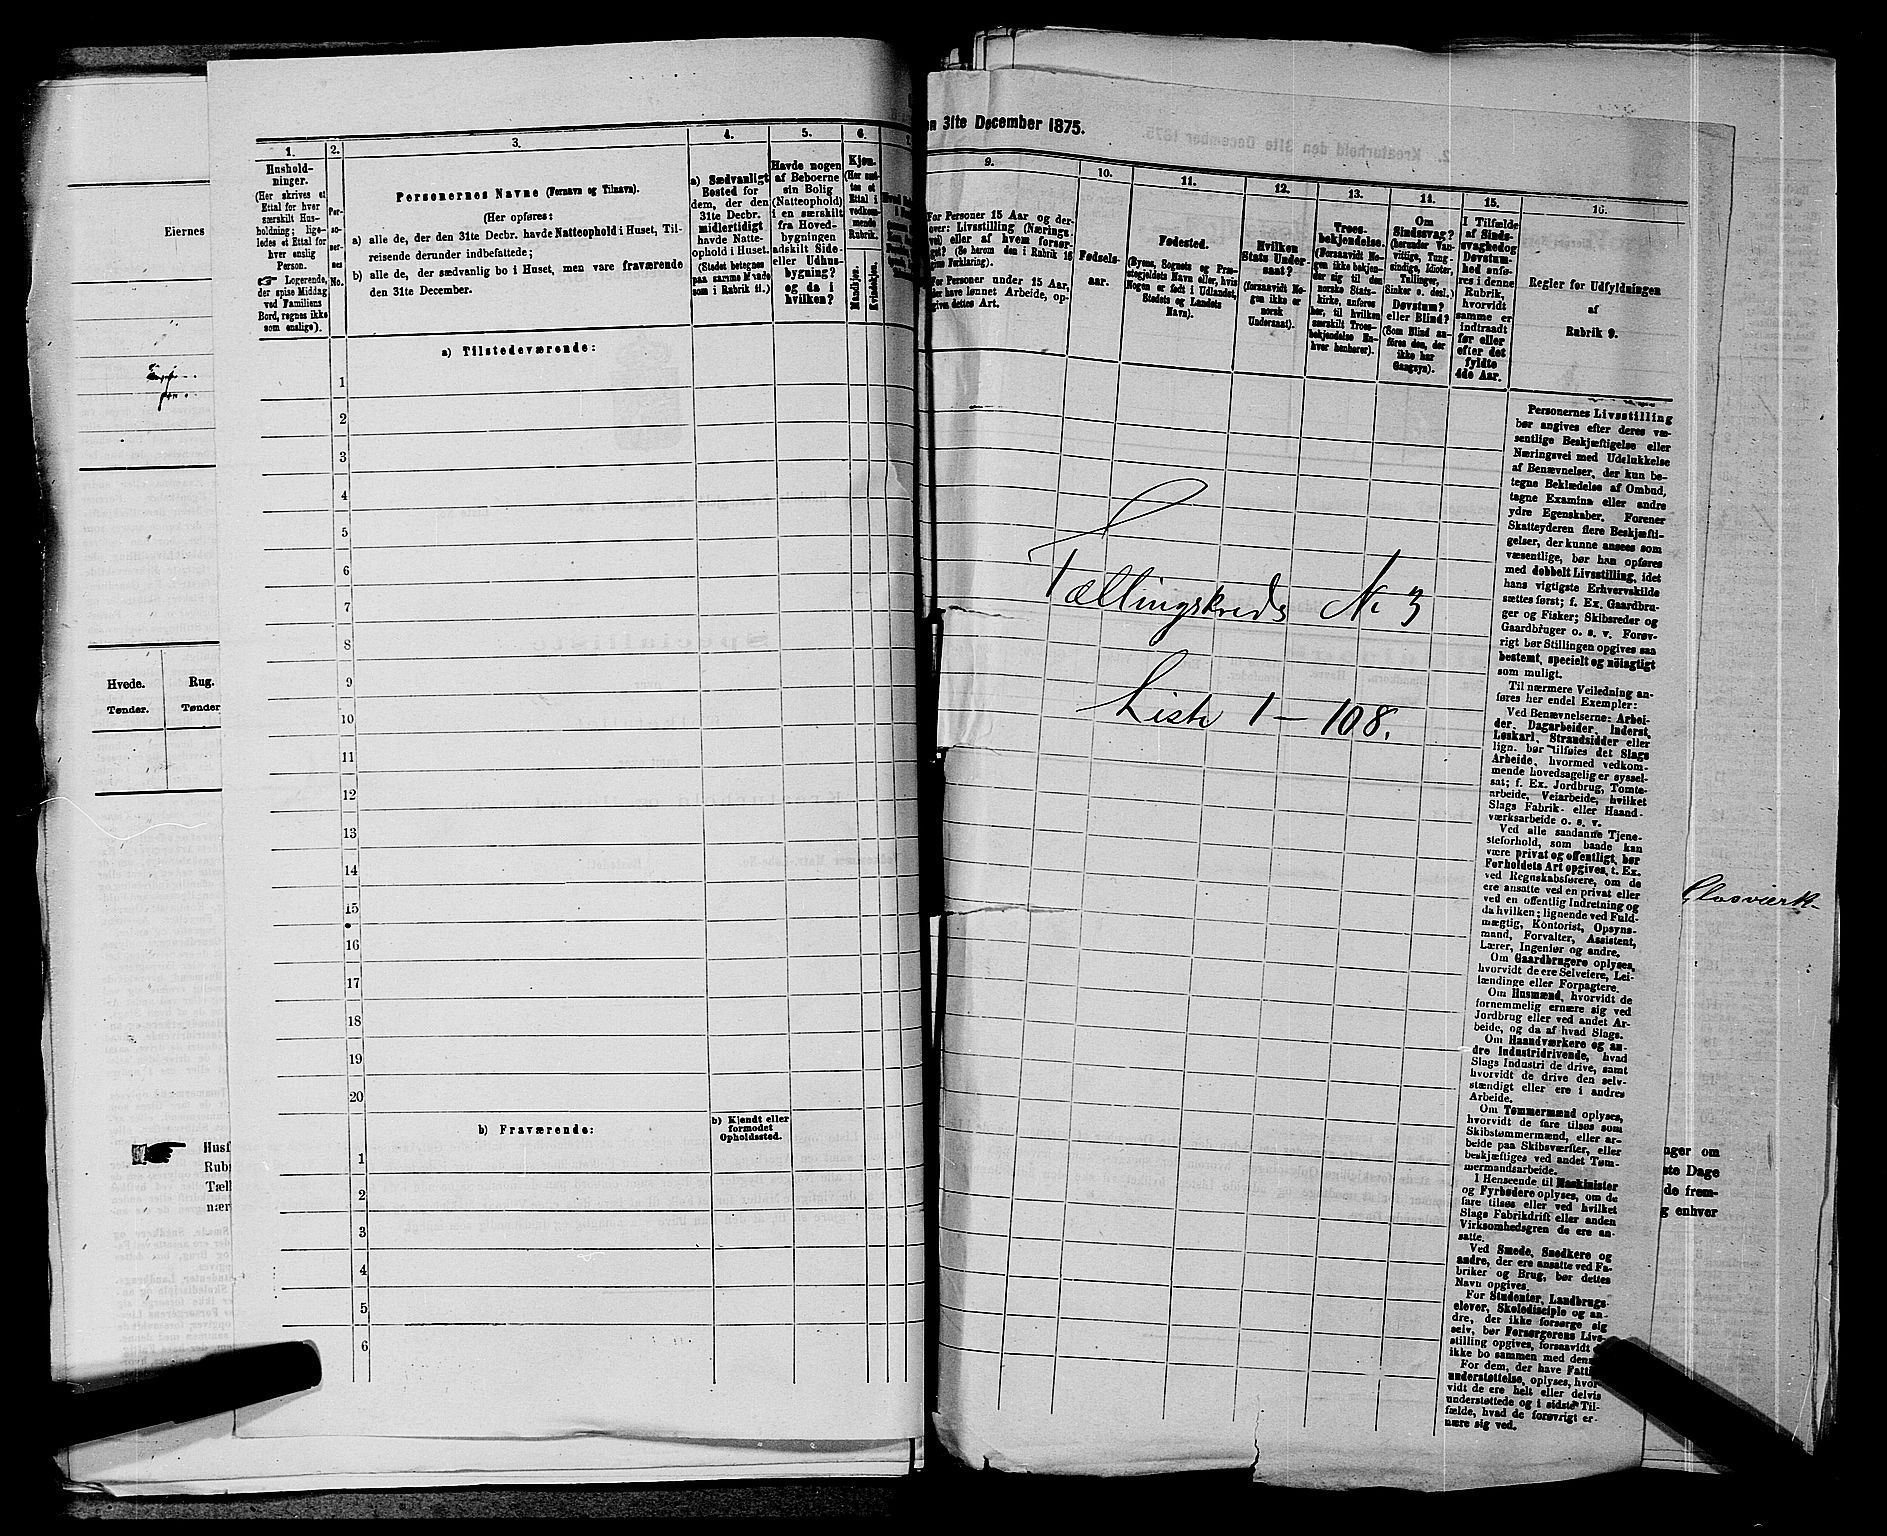 Eiernes
Hvede.
Rug.
Tønder.
Tønder
Husf
Rub
Tæl
nær
1.
2.
3.
4.
5.
6.
7.
Hushold-
ninger.
(Her skrives et
Ettal for hver
særskilt Hus-
holdning; lige-
ledes et Ettal for
hver enslig
Person.
Logerende,
der spise Middag
ved Familiens
Bord, regnes ikke
som enslige).
Per-
so-
ner-
nes
No.
Personernes Navne (Fornavn og Tilnavn).
(Her opføres:
a) alle de, der den 31te Decbr. havde Natteophold i Huset, Til-
reisende derunder indbefattede;
b) alle de, der sædvanlig bo i Huset, men vare fraværende
den 31te December.
a) Sædvanligt
Bosted for
dem, der den
31te Decbr.
midlertidigt
havde Natte-
ophold i Huset.
(Stedet betegnes
paa samme Maade
som i Rubrik 11.)
Havde nogen
af Beboerne
sin Bolig
(Natteophold)
i en særskilt
fra Hoved-
bygningen
adskilt Side
eller Udhus-
bygning?
og da i
hvilken?
Kjøn.
(Her sæt-
tes et
Ettal i
vedkom-
mende
Rubrik.
Mandkjøn.
Kvindekjøn.
a) Tilstedeværende:
1
2
3
4
5
6
7
8
9
10
11
12
13
14
15
16
17
18
19
20
b) Fraværende:
b) Kjendt eller
formodet
Opholdssted.
1
2
3
4
5
6
31te December 1875.
9.
10.
11.
12.
13.
14.
15.
16.
For Personer 15 Aar og der-
over: Livsstilling (Nærings-
vei) eller af hvem forsør-
get? (Se herom den i Rubrik 16
givne Forklaring).
For Personer under 15 Aar,
der have lønnet Arbeide, op-
gives dettes Art.
Fødsels-
aar.
Fødested.
(Byens, Sognets og Præ-
stegjeldets Navn eller, hvis
Nogen er født i Udlandet,
Stedets og Landets
Navn).
Hvilken
Stats Under-
saat?
(forsaavidt No-
gen ikke er
norsk
Undersaat).
Troes-
bekjendelse.
(Forsaavidt No-
gen ikke bekjen-
der sig til den
norske Stats-
kirke, anføres
her, til hvilken
særskilt Troes-
bekjendelse En-
hver henhører).
Om
Sindssvag?
(herunder Van-
vittige, Tung-
sindige, Idioter,
Tullinger,
Sinker o. desl.)
Døvstum?
eller Blind?
(Som Blind an-
føres den, der
ikke har
Gangsyn).
I Tilfælde
af Sinds-
svaghed og
Døvstum-
hed anfø-
res i denne
Rubrik,
hvorvidt
samme er
indtraadt
før eller
efter det
fyldte
4de Aar.
Regler for Udfyldningen
af
Rubrik 9.
Personernes Livsstilling
bør angives efter deres væ-
sentlige Beskjæftigelse eller
Næringsvei med Udelukkelse
af Benævnelser, der kun be-
tegne Beklædelse af Ombud,
tagne Examina eller andre
ydre Egenskaber. Forener
Skatteyderen flere Beskjæfti-
gelser, der kunne ansees som
væsentlige, bør han opføres
med dobbelt Livsstilling, idet
hans vigtigste Erhvervskilde
sættes først; f. Ex. Gaardbru-
ger og Fisker; Skibsreder og
Gaardbruger o. s. v. Forøv-
rigt bør Stillingen opgives saa
bestemt, specielt og nöiagtigt
som muligt.
Til nærmere Veiledning an-
føres her endel Exempler:
Ved Benævnelserne: Arbei-
der, Dagarbeider, Inderst,
Løskarl, Strandsidder eller
lign. bør tilføies det Slags
Arbeide, hvormed vedkom-
mende hovedsagelig er syssel-
sat; f. Ex. Jordbrug, Tomte-
arbeide, Veiarbeide, hvilket
Slags Fabrik- eller Haand-
værksarbeide o. s. v.
Ved alle saadanne Tjene-
steforhold, som baade kan
være privat og offentligt, bør
Forholdets Art opgives, t. Ex.
ved Regnskabsførere, om de
ere ansatte ved en privat eller
ved en offentlig Indretning og
da hvilken; lignende ved Fuld-
mægtig, Kontorist, Opsyns-
mand, Forvalter, Assistent,
Lærer, Ingeniør og andre.
Om Gaardbrugere oplyses,
hvorvidt de ere Selveiere, Lei-
lændinge eller Forpagtere.
Om Husmænd, hvorvidt de
fornemmelig ernære sig ved
Jordbrug eller ved andet Ar-
beide, og da af hvad Slags.
Om Haandværkere og an-
dre Industridrivende, hvad
Slags Industri de drive, samt
hvorvidt de drive den selv-
stændigt eller ere i andres
Arbeide.
Om Tømmermænd oplyses,
hvorvidt de fare tilsøs som
Skibstømmermænd, eller ar-
beide paa Skibsværfter, eller
beskjæftiges ved andet Tøm-
mermandsarbeide.
I Henseende til Maskinister
og Fyrbødere oplyses, om de
fare tilsøs eller ved hvilket
Slags Fabrikdrift eller anden
Virksomhedsgren de ere an-
satte.
Ved Smede, Snedkere og
andre, der ere ansatte ved Fa-
briker og Brug, bør dettes
Navn opgives.
For Studenter, Landbrugs-
elever, Skoledisciple og an-
dre, der ikke forsørge sig
selv, bør Forsørgerens Livs-
stilling opgives, forsaavidt
ikke bo sammen med denn
For dem, der have Fatti
understøttelse, oplyses, hvor-
vidt de ere helt eller delvis
understøttede og i sidste Til-
fælde, hvad de forøvrigt er-
nære sig ved.
Tællingskreds No 3
Liste 1 - 108.
Glasværk
nger om
ste Dage
de frem-
g enhver